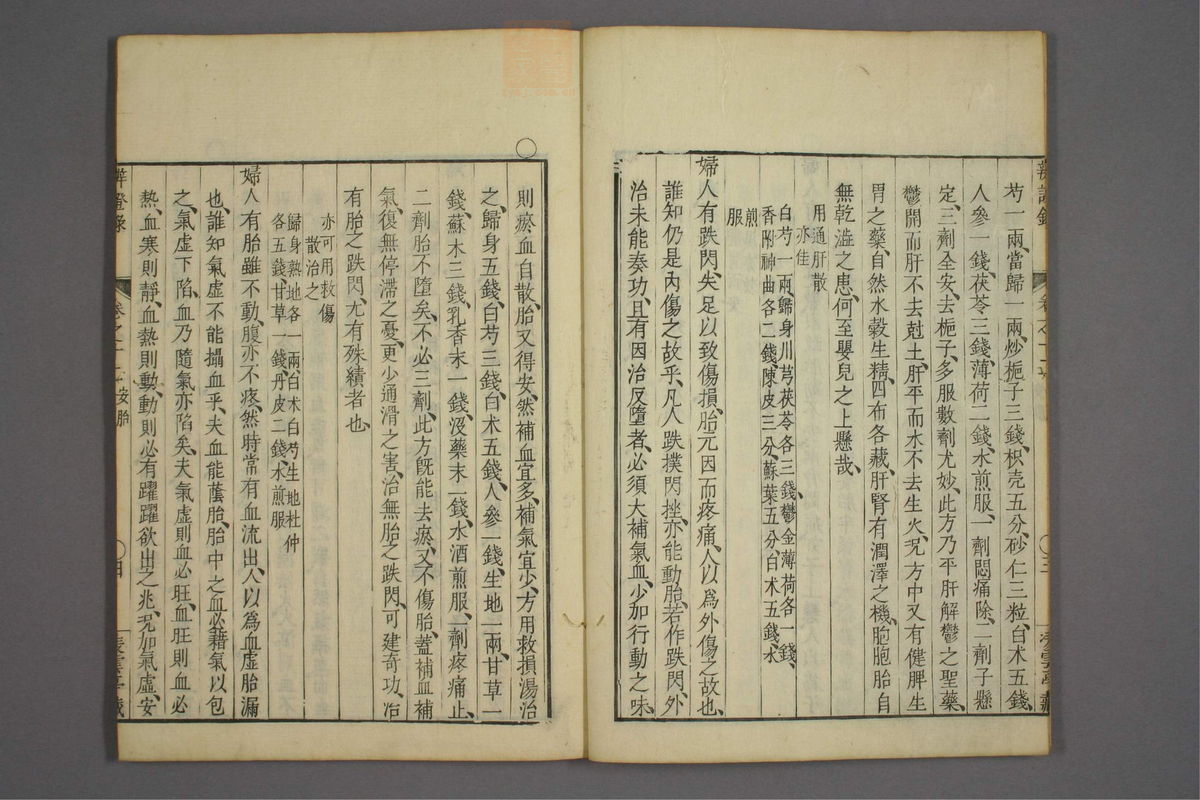 芍一兩當歸一兩炒梔子三錢枳壳五分砂仁三粒白术五錢
人參一錢茯苓三錢薄荷二錢水煎服一劑悶痛除二劑子懸
定三劑全安去梔子多服數劑尤妙此方乃平肝解鬱之聖藥
鬱開而肝不去尅土肝平而木不去生火况方中又有健脾生
胃之藥自然水穀生精四布各藏肝腎有潤澤之機胞胎自
無乾澁之患何至嬰兒之上懸哉
用通肝散
亦佳
白芍一兩歸身川芎茯苓各三錢鬱金薄荷各一錢
香附神曲各二錢陳皮三分蘇葉五分白术五錢水
煎
服
婦人有跌閃失足以致傷損胎元因而疼痛人以爲外傷之故也
誰知仍是內傷之故乎凡人跌撲閃挫亦能動胎若作跌閃外
治未能奏功且有因治反墮者必須大補氣血少加行動之味
則瘀血自散胎又得安然補血宜多補氣宜少方用救損湯治
之歸身五錢白芍三錢白术五錢人參一錢生地一兩甘草一
錢蘇木三錢乳香末一錢沒藥末一錢水酒煎服一劑疼痛止
二劑胎不墮矣不必三劑此方旣能去瘀又不傷胎蓋補血補
氣復無停滯之憂更少通滑之害治無胎之跌閃可建奇功治
有胎之跌閃尤有殊績者也
亦可用救傷
散治之
歸身熟地各一兩白术白芍生地杜仲
各五錢甘草一錢丹皮二錢水煎服
婦人有胎雖不動腹亦不疼然時常有血流出人以爲血虛胎漏
也誰知氣虛不能攝血乎夫血能蔭胎胎中之血必藉氣以包
之氣虛下陷血乃隨氣亦陷矣夫氣虛則血必旺血旺則血必
熱血寒則靜血熱則動動則必有躍躍欲出之兆况加氣虛安
安胎